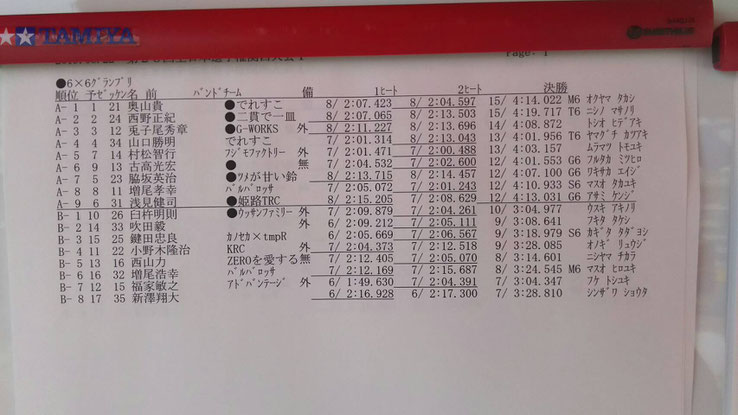 TAMIYA
Page: 1
●6×6グランプリ
順位 予 ゼッケン 名 前 バンドチーム 備 1ヒート 2ヒート 決勝
A- 1 1 21 奥山貴 ●でれすこ 8/ 2:07.423 8/ 2:04.597 15/ 4:14.022 M6 オクヤマ タカシ
A- 2 2 24 西野正紀 ●二貫で一皿 8/ 2:07.065 8/ 2:13.503 15/ 4:19.717 T6 ニシノ マサノリ
A- 3 3 12 兎子尾秀章 ●G-WORKS 外 8/ 2:11.227 8/ 2:13.696 14/ 4:08.872 トシオ ヒデアキ
A- 4 4 34 山口勝明 でれすこ 7/ 2:01.314 8/ 2:13.043 13/ 4:01.956 T6 ヤマグチ カツアキ
A- 5 7 14 村松智行 フジモファクトリー 外 7/ 2:01.471 7/ 2:00.488 13/ 4:03.157 ムラマツ トモユキ
A- 6 9 13 古高光宏 ● 無 7/ 2:04.532 7/ 2:02.600 12/ 4:01.553 G6 フルタカ ミツヒロ
A- 7 5 23 脇坂英治 ●ツメが甘い鈴 8/ 2:13.715 8/ 2:14.457 12/ 4:07.100 G6 ワキサカ エイジ
A- 8 8 11 増尾孝幸 バルバロッサ 7/ 2:05.072 7/ 2:01.243 12/ 4:10.933 S6 マスオ タカユキ
A- 9 6 31 浅見健司 ●姫路TRC 8/ 2:15.205 7/ 2:08.629 12/ 4:13.031 G6 アサミ ケンジ
B- 1 10 26 臼杵明則 ●ウッサンファミリー 外 7/ 2:09.879 7/ 2:04.261 10/ 3:04.977 ウスキ アキノリ
B- 2 14 33 吹田毅 外 6/ 2:09.212 7/ 2:05.111 9/ 3:08.641 フキタ タケシ
B- 3 15 25 鍵田忠良 カノセカ×tmpR 6/ 2:05.669 7/ 2:06.567 9/ 3:18.979 S6 カギタ タダヨシ
B- 4 11 22 小野木隆治 KRC 外 7/ 2:04.373 7/ 2:12.518 9/ 3:28.085 オノギ リュウジ
B- 5 13 16 西山力 ZEROを愛する 無 7/ 2:12.405 7/ 2:05.070 8/ 3:14.601 ニシヤマ チカラ
B- 6 16 32 増尾浩幸 バルバロッサ 7/ 2:12.169 7/ 2:15.687 8/ 3:24.545 M6 マスオ ヒロユキ
B- 7 12 15 福家敏之 アドバンテージ 外 6/ 1:49.630 7/ 2:04.391 7/ 3:04.347 フケ トシユキ
B- 8 17 35 新澤翔大 6/ 2:16.928 6/ 2:17.300 7/ 3:28.810 シンザワ ショウタ